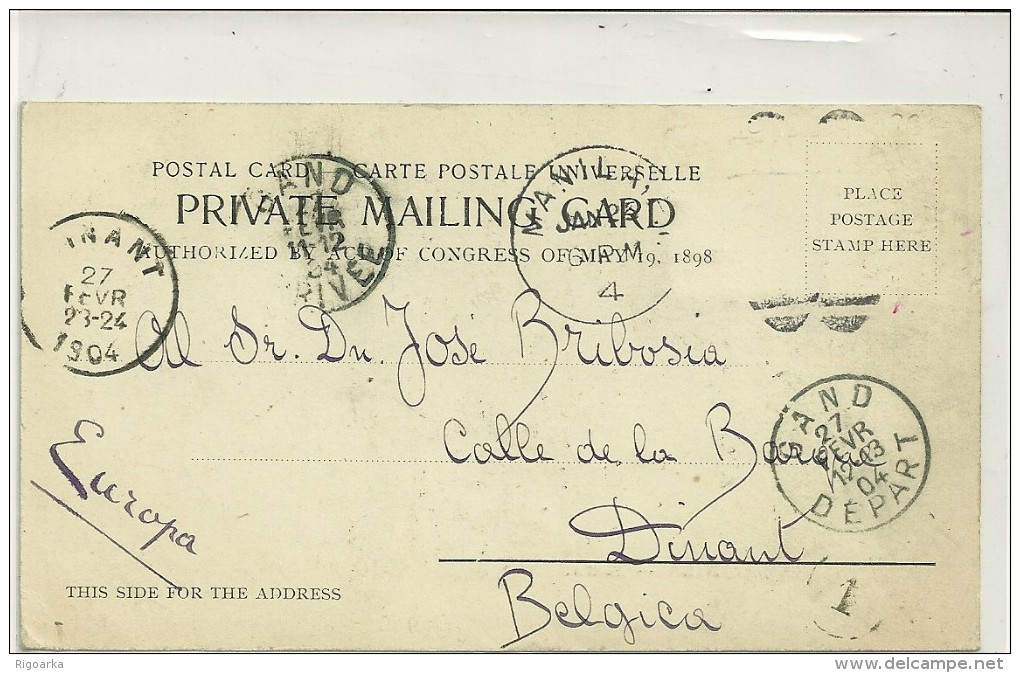 POSTAL CARD CARTE POSTALE UNIVERSELLE
PRIVATE MAILING CARD
AUTHORIZED BY ACT OF CONGRESS OF MAY 19, 1898
PLACE
POSTAGE
STAMP HERE
GAND
FEVR
11-12
04
MANILA,
JAN
6 P.M.
4
DINANT
27
FEVR
23-24
1904
Al Sr. Dn. José Bribosia
Calle de la Barque
Dinant
Belgica
Europa
GAND
27
FEVR
12-13
04
DEPART
1
THIS SIDE FOR THE ADDRESS
Rigoarka
www.delcampe.net